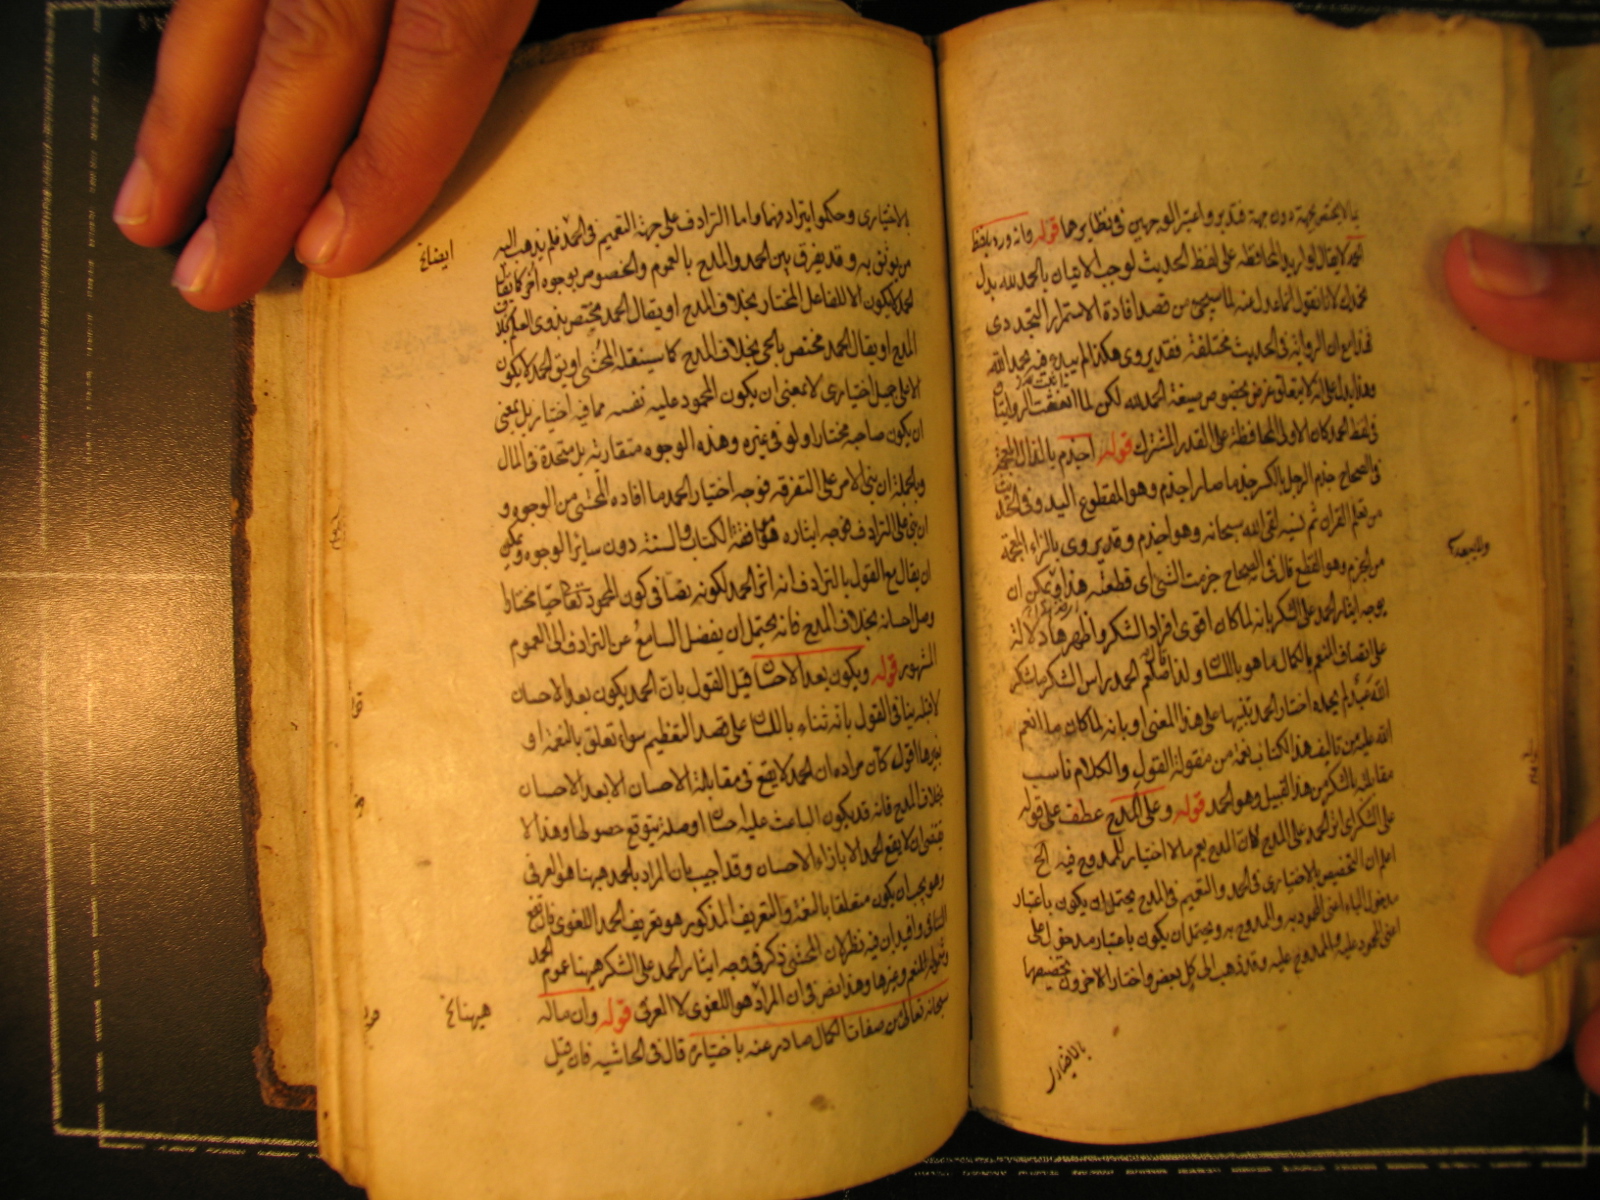 مما لا يختص بجهة دون جهة فتدبر واعتبر الوجهين في نظايرها قوله فانه ورد بلفظ
الحمد لا يقال لو اريد المحافظة على لفظ الحديث لوجب الاتيان بالحمد لله بدل
نحمدك لانا نقول انما عدل عنه لما سيجئ من قصد افادة الاستمرار التجددى
هذا مع ان الرواية في الحديث مختلفة فقد يروى هكذا لم يبدء فيه بحمد الله
وهذا يدل على انه لا يتعلق غرض بخصوص صيغة الحمد لله لكن لما اتفقت الروايتان
في لفظ الحمد كان الاولى المحافظة على القدر المشترك قوله اجذم بالذال المعجمة
في الصحاح جذم الرجل بالكسر جذما صار اجذم وهو المقطوع اليد وفي الحديث
من تعلم القران ثم نسيه لقى الله سبحانه وهو اجذم وقد يروى بالزاء المعجمة
من الجزم وهو القطع قال في الصحاح جزمت الشئ اى قطعته هذا ويمكن ان
يوجه ايثار الحمد على الشكر بانه لما كان اقوى افراد الشكر واظهرها دلالة
على اتصاف المنعم بالكمال ما هو باللسان ولذا قال الحمد راس الشكر ما شكر
الله عبد لم يحمده اختار الحمد تنبيها على هذا المعنى او بانه لما كان ما انعم
الله عليه من تاليف هذا الكتاب نعمة من مقولة القول والكلام ناسب
مقابلته بالشكر من هذا القبيل وهو الحمد قوله وعلى المدح عطف على قوله
على الشكر اى اثر الحمد على المدح لان المدح يعم ما لا اختيار للممدوح فيه الخ
اعلم ان التخصيص بالاختيارى في الحمد والتعميم في المدح يحتمل ان يكون باعتبار
مدخول الباء اعنى المحمود به والممدوح به ويحتمل ان يكون باعتبار مدخول على
اعنى المحمود عليه والممدوح عليه وقد ذهب الى كل بعض واختار الاخرون تخصيصهما
بالاختيارى
الاختيارى وحكموا بترادفهما واما الترادف على جهة التعميم في الحمد فلم يذهب اليه
من يوثق به وقد يفرق بين الحمد والمدح بالعموم والخصوص بوجوه اخر كما يقال
الحمد لا يكون الا للفاعل المختار بخلاف المدح او يقال الحمد مختص بذوى العلم بخلاف
المدح او يقال الحمد مختص بالحى بخلاف المدح كما سينقله المحشى او يق الحمد لا يكون
الا على جميل اختيارى لا بمعنى ان يكون المحمود عليه نفسه مما فيه اختيار بل بمعنى
ان يكون صاحبه مختارا ولو في غيره وهذه الوجوه متقاربة بل متحدة في المال
وبالجملة ان بنى الامر على التفرقة فوجه اختيار الحمد ما افاده المحشى من الوجوه و
ان بنى على الترادف فوجه ايثاره موافقة الكتاب والسنة دون ساير الوجوه ويمكن
ان يقال مع القول بالترادف انه اثر الحمد لكونه نصا في كون المحمود حيا مختارا
وصل احسانه بخلاف المدح فانه يحتمل ان يفضل السامع عن الترادف الى العموم
المشهور قوله ويكون بعد الاحسان قيل القول بان الحمد يكون بعد الاحسان
ينافى القول بانه ثناء باللسان على قصد التعظيم سواء تعلق بالنعمة او
بغيرها اقول كأن مراده ان الحمد لا يقع في مقابلة الاحسان الا بعد الاحسان
بخلاف المدح فانه قد يكون الباعث عليه احسانا او صلة يتوقع حصولها وهذا لا
يقتضى ان لا يقع الحمد الا بازاء الاحسان وقد اجيب بان المراد بالحمد ههنا هو العرفى
وهو يجب ان يكون متعلقا بالنعمة والتعريف المذكور هو تعريف الحمد اللغوى فارتفع
التنافى وافيد ان فيه نظر لان المحشى ذكر في وجه ايثار الحمد على الشكر ههنا عموم الحمد
وشموله للنعم وغيرها وهذا نص في ان المراد هو اللغوى لا العرفى قوله وان ماله
سبحانه تعالى من صفات الكمال صادر عنه باختياره قال في الحاشية فان قيل